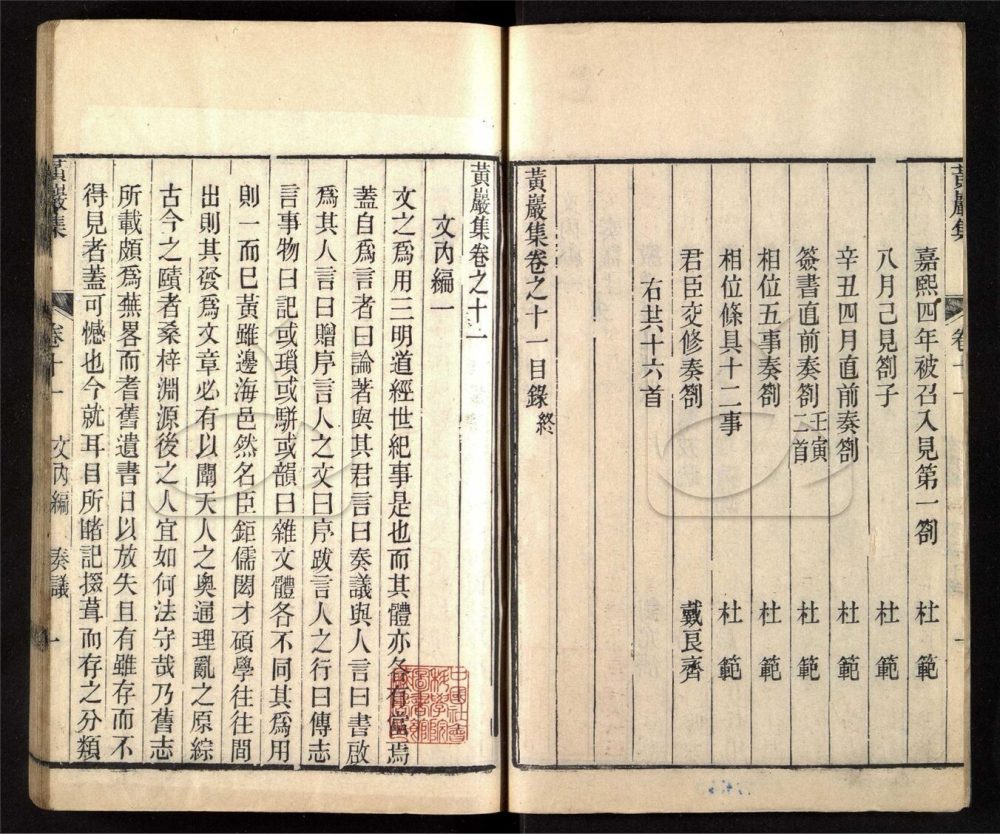 黃巖集
卷十一
一
嘉熙四年被召入見第一劄 杜範
八月己見劄子 杜範
辛丑四月直前奏劄 杜範
簽書直前奏劄 壬寅二首 杜範
相位五事奏劄 杜範
相位條具十二事 杜範
君臣交修奏劄 戴良齊
右共十六首
黃巖集卷之十一目錄終
黃巖集卷之十一
文內編一
文之爲用三明道經世紀事是也而其體亦各有當焉
蓋自爲言者曰論著與其君言曰奏議與人言曰書啟
爲其人言曰贈序言人之文曰序跋言人之行曰傳志
言事物曰記或瑣或駢或韻曰雜文體各不同其爲用
則一而巳黃雖邊海邑然名臣鉅儒閎才碩學往往間
出則其發爲文章必有以闡天人之奧通理亂之原綜
古今之賾者桑梓淵源後之人宜如何法守哉乃舊志
所載頗爲蕪畧而耆舊遺書日以放失且有雖存而不
得見者蓋可憾也今就耳目所睹記掇葺而存之分類
黃巖集
卷十一 文內編 奏議 一
中國社會
科學院
圖書館